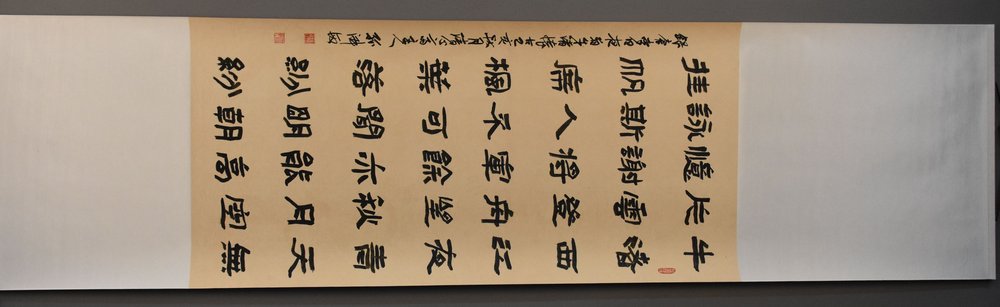 牛渚西江夜青天無
片雲登舟望秋月空
憶謝將軍餘亦能高
詠斯人不可聞明朝
挂帆席楓葉落紛紛
李白夜泊牛渚懷古己亥秋月